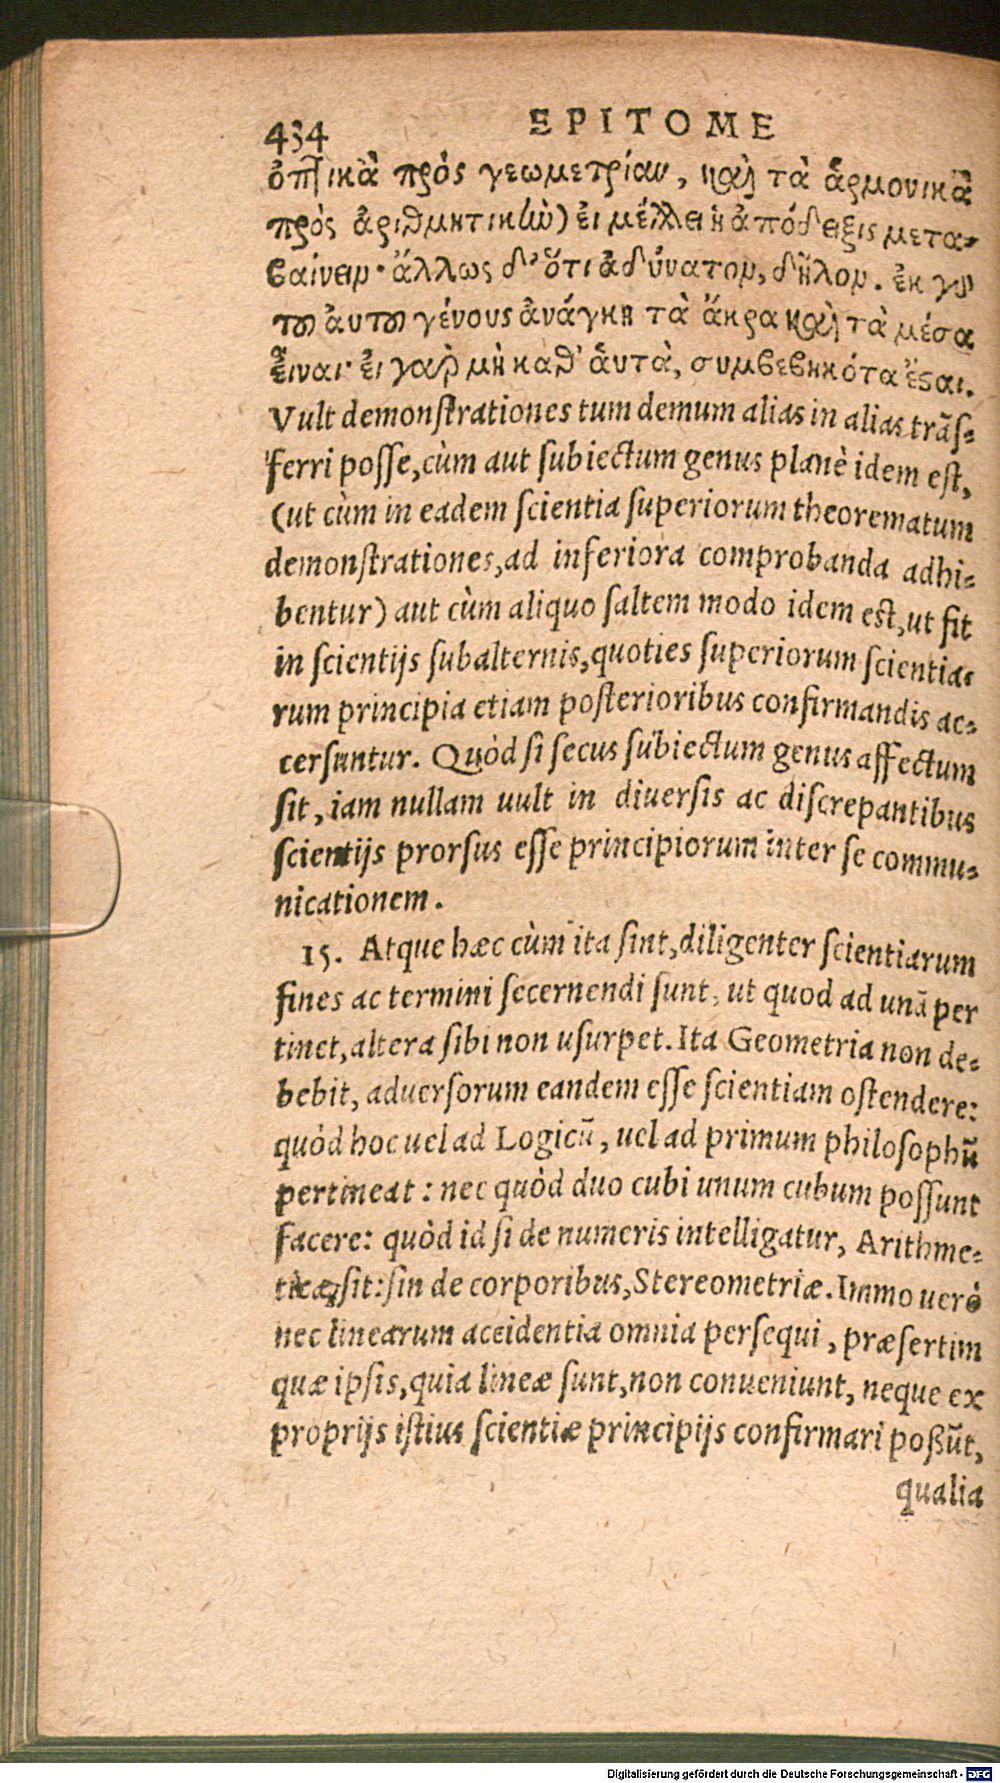 434 EPITOME
ὀπτικὰ πρὸς γεωμετρίαν, καὶ τὰ ἁρμονικὰ
πρὸς ἀριθμητικὴν) εἰ μέλλει ἡ ἀπόδειξις μετα-
βαίνειν· ἄλλως δ' ὅτι ἀδύνατον, δῆλον. ἐκ γὰρ
τοῦ αὐτοῦ γένους ἀνάγκη τὰ ἄκρα καὶ τὰ μέσα
εἶναι· εἰ γὰρ μὴ καθ' ἁυτὰ, συμβεβηκότα ἔσαι.
Vult demonſtrationes tum demum alias in alias trãſ-
ferri poſſe, cùm aut ſubiectum genus planè idem eſt,
(ut cùm in eadem ſcientia ſuperiorum theorematum
demonſtrationes, ad inferiora comprobanda adhi-
bentur) aut cùm aliquo ſaltem modo idem eſt, ut fit
in ſcientijs ſubalternis, quoties ſuperiorum ſcientia-
rum principia etiam poſterioribus confirmandis ac-
cerſuntur. Quòd ſi ſecus ſubiectum genus affectum
ſit, iam nullam uult in diuerſis ac diſcrepantibus
ſcientijs prorſus eſſe principiorum inter ſe commu-
nicationem.
15. Atque hæc cùm ita ſint, diligenter ſcientiarum
fines ac termini ſecernendi ſunt, ut quod ad unã per
tinet, altera ſibi non uſurpet. Ita Geometria non de-
bebit, aduerſorum eandem eſſe ſcientiam oſtendere:
quòd hoc uel ad Logicũ, uel ad primum philoſophũ
pertineat: nec quòd duo cubi unum cubum poſſunt
facere: quòd id ſi de numeris intelligatur, Arithme-
ticæ ſit: ſin de corporibus, Stereometriæ. Immo uerò
nec linearum accidentia omnia perſequi, præſertim
quæ ipſis, quia lineæ ſunt, non conueniunt, neque ex
proprijs iſtius ſcientiæ principijs confirmari poßũt,
qualia
Digitalisierung gefördert durch die Deutsche Forschungsgemeinschaft - DFG